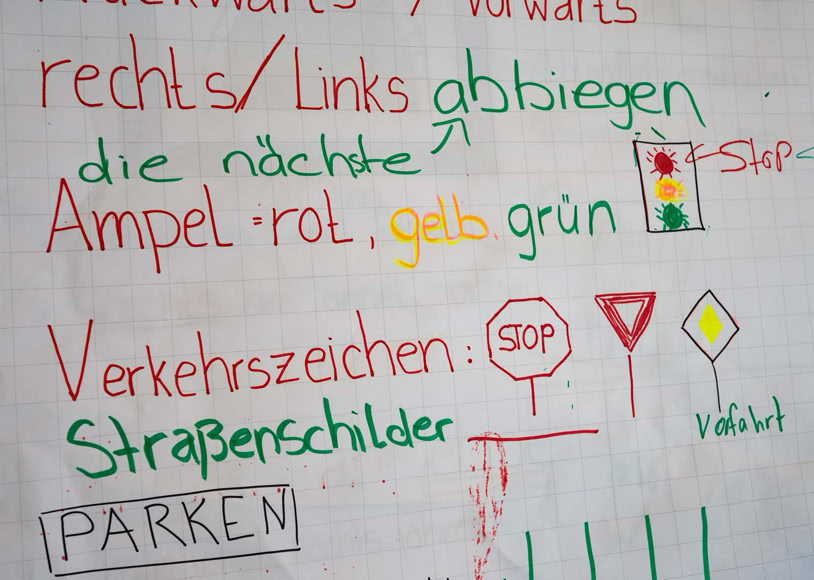 vorwärts
rechts/Links abbiegen
die nächste
Ampel = rot, gelb. grün
Stop
Verkehrszeichen:
STOP
Vorfahrt
Straßenschilder
PARKEN